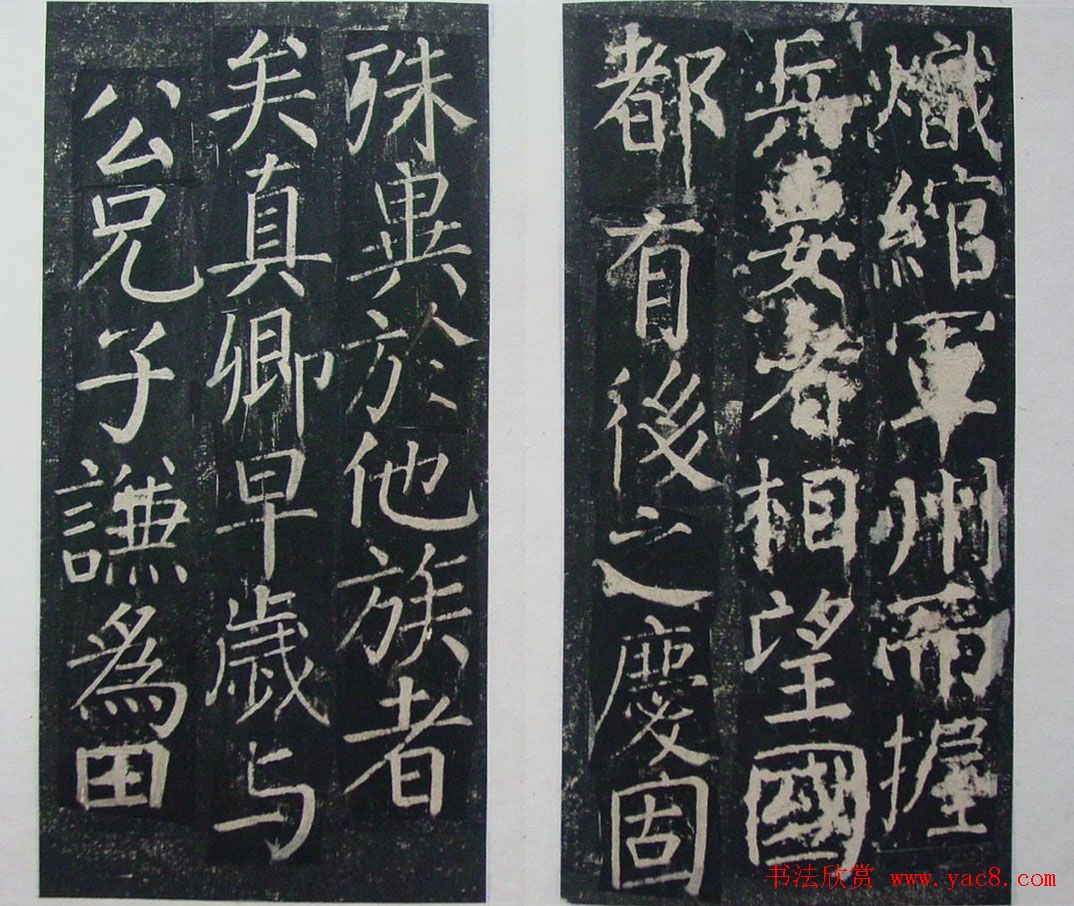 熾綰軍州而握
兵要者相望國
都有後之慶固
殊異於他族者
矣真卿早歲与
公兄子謙為田
书法欣赏 www.yac8.com